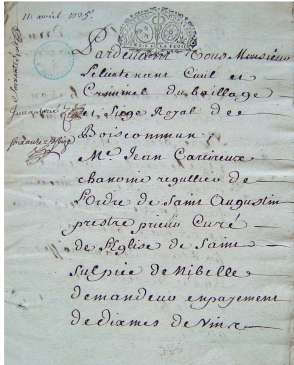 11 avril 1725.
Pardevant Vous Monsieur
Le lieutenant Civil et
Criminel du bailliage
et Siege Royal de
Boiscommun
Me. Jean Carireux
chanoine regullier de
l'ordre de Saint Augustin
prestre prieur Curé
de l'Eglise de Saint
sulpice de Nibelle
demandeur en payement
de dixmes de vin